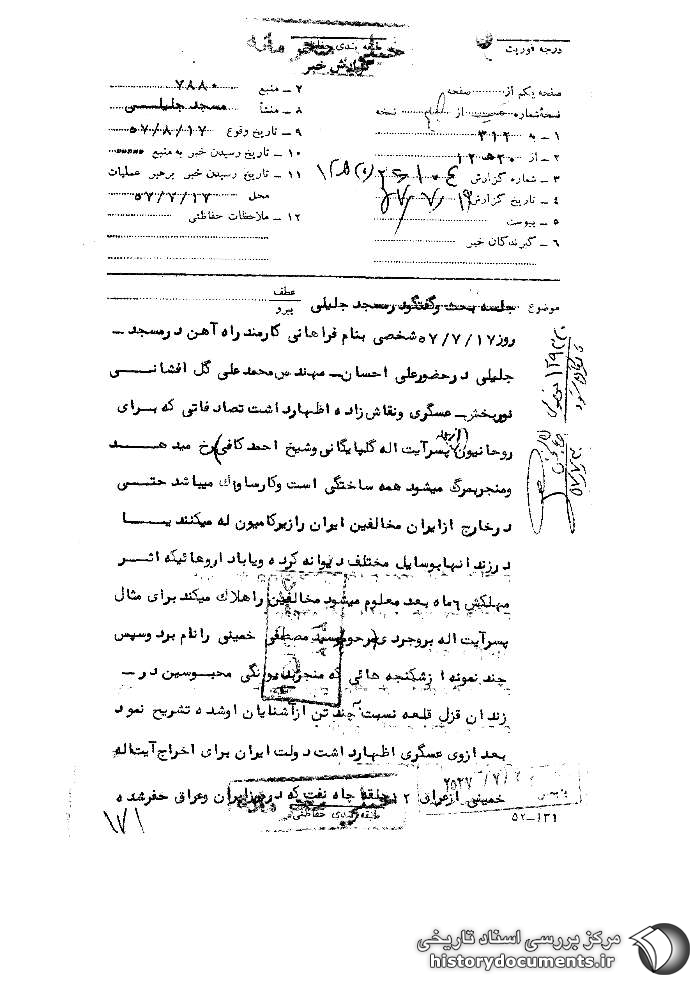 درجه فوریت
طبقه بندی حفاظتی
خیلی محرمانه
گزارش خبر
صفحه یکم از صفحه
نسخه شماره از نسخه
۱ـ به ۳۱۲
۲ـ از ۲۰ ه ۱۲
۳ـ شماره گزارش
۴ـ تاریخ گزارش
۵ـ پیوست
۶ـ گیرندگان خبر
۷ـ منبع ۷۸۸۰
۸ـ منشأ مسجد جلیلی
۹ـ تاریخ وقوع ۵۷/۸/۱۷
۱۰ـ تاریخ رسیدن خبر به منبع
۱۱ـ تاریخ رسیدن خبر برهبر عملیات
محل ۵۷/۷/۱۷
۱۲ـ ملاحظات حفاظتی
موضوع جلسه بحث وگفتگو درمسجد جلیلی عطف
پیرو
روز ۵۷/۷/۱۷ شخصی بنام فراهانی کارمند راه آهن در مسجد ـ
جلیلی در حضور علی احسان ـ مهندس محمد علی گل افشانی
نوربخش ـ عسگری و نقاش زاده اظهارداشت تصادفاتی که برای
روحانیون (ازجمله پسر آیت اله گلپایگانی و شیخ احمد کافی) رخ میدهد
ومنجربمرگ میشود همه ساختگی است وکار ساواک میباشد حتی
در خارج از ایران مخالفین ایران را زیر کامیون له میکنند یا
در زندانها بوسایل مختلف دیوانه کرده ویا باداروهائیکه اثر
مهلکش ۶ ماه بعد معلوم میشود مخالفین را هلاک میکند برای مثال
پسر آیت اله بروجردی (مرحوم سید مصطفی خمینی را نام برد وسپس
چند نمونه از شکنجه هائی که منجر بدیوانگی محبوسین در ـ
زندان قزل قلعه نسبت چند تن از آشنایان او شده تشریح نمود
بعد ازوی عسگری اظهارداشت دولت ایران برای اخراج آیت اله
خمینی از عراق ۱۲ حلقه چاه نفت که در مرز ایران وعراق حفر شده
طبقه بندی حفاظتی
۱۷۱
۵۲ـ۱۳۱
مرکز بررسی اسناد تاریخی
historydocuments.ir